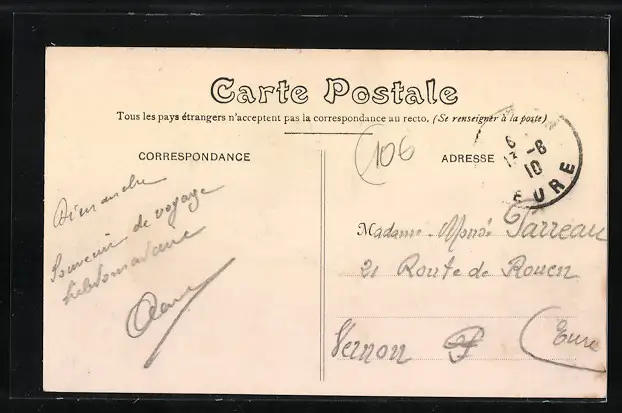 Carte Postale
Tous les pays étrangers n'acceptent pas la correspondance au recto. (Se renseigner à la poste)
CORRESPONDANCE
106
ADRESSE
6
-8
10
EURE
Dimanche
Souvenir de voyage
hebdomadaire
Madame Parreau
21 Route de Rouen
Vernon (Eure